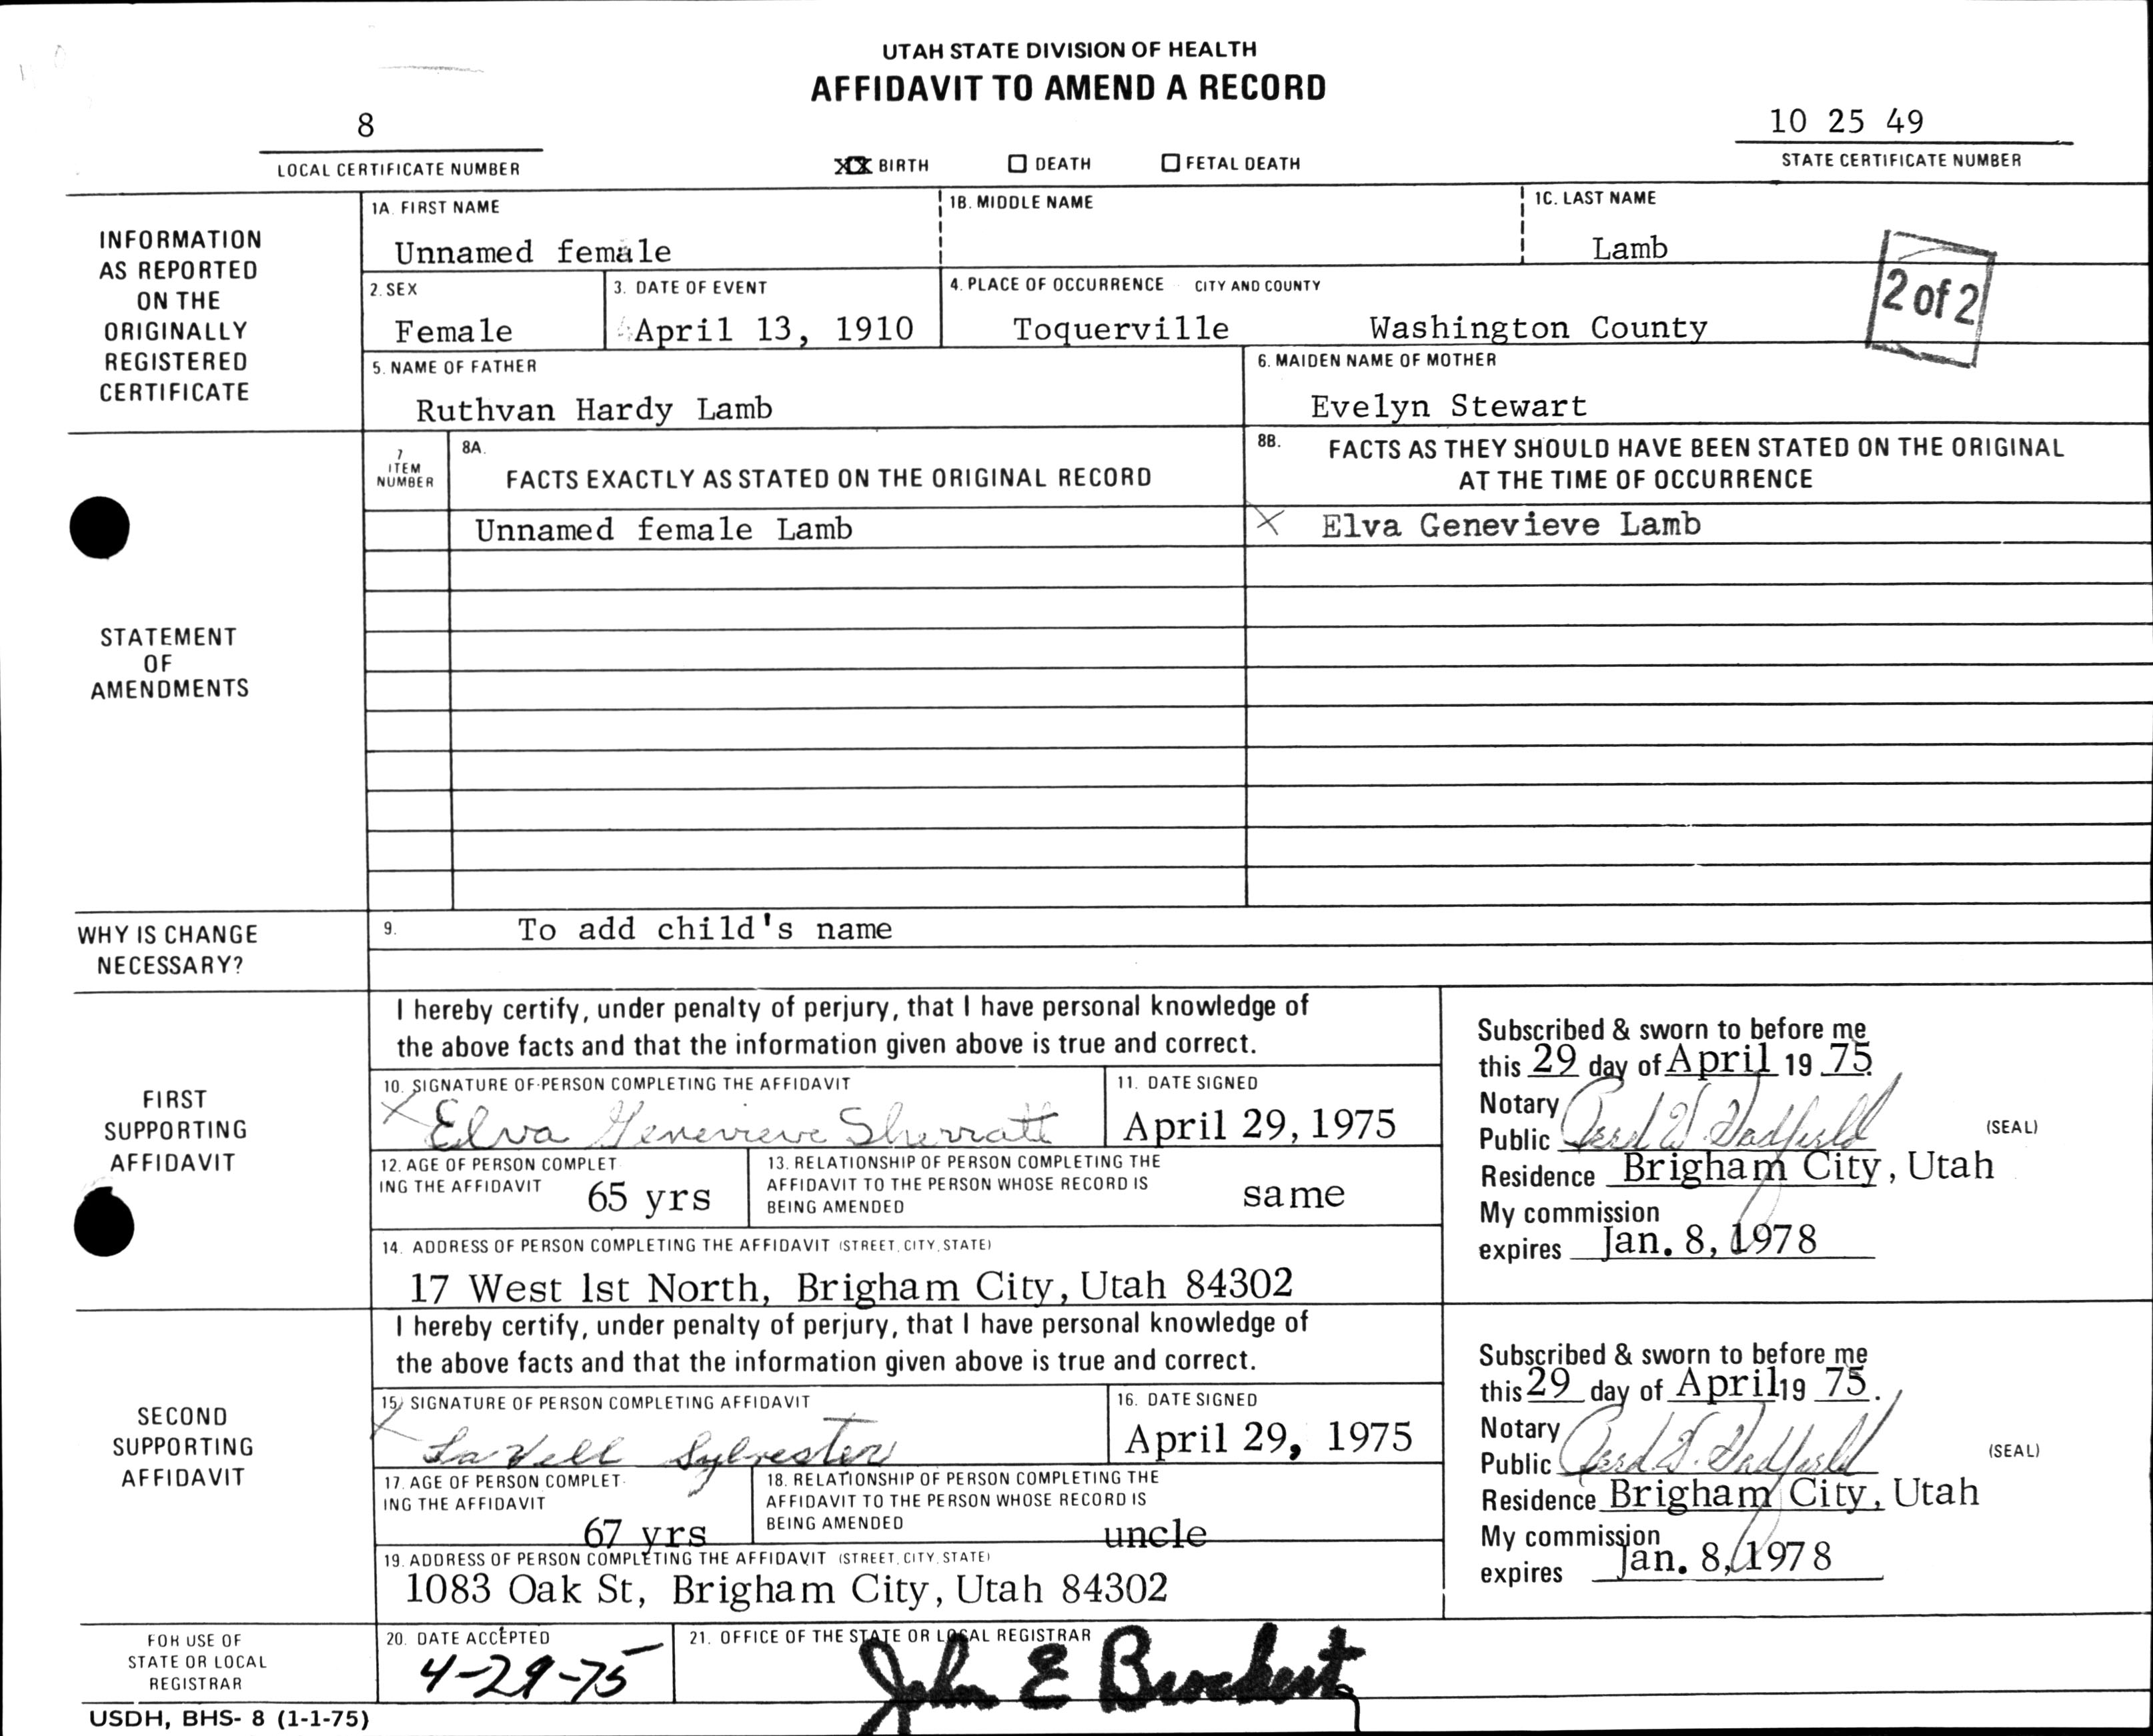 UTAH STATE DIVISION OF HEALTH
AFFIDAVIT TO AMEND A RECORD
8
LOCAL CERTIFICATE NUMBER
XX BIRTH
DEATH
FETAL DEATH
10 25 49
STATE CERTIFICATE NUMBER
INFORMATION
AS REPORTED
ON THE
ORIGINALLY
REGISTERED
CERTIFICATE
1A. FIRST NAME
Unnamed female
1B. MIDDLE NAME
1C. LAST NAME
Lamb
2. SEX
Female
3. DATE OF EVENT
April 13, 1910
4. PLACE OF OCCURRENCE CITY AND COUNTY
Toquerville Washington County
2 of 2
5. NAME OF FATHER
Ruthvan Hardy Lamb
6. MAIDEN NAME OF MOTHER
Evelyn Stewart
STATEMENT
OF
AMENDMENTS
7
ITEM
NUMBER
8A.
FACTS EXACTLY AS STATED ON THE ORIGINAL RECORD
8B. FACTS AS THEY SHOULD HAVE BEEN STATED ON THE ORIGINAL
AT THE TIME OF OCCURRENCE
Unnamed female Lamb
X Elva Genevieve Lamb
WHY IS CHANGE
NECESSARY?
9. To add child's name
FIRST
SUPPORTING
AFFIDAVIT
I hereby certify, under penalty of perjury, that I have personal knowledge of
the above facts and that the information given above is true and correct.
10. SIGNATURE OF PERSON COMPLETING THE AFFIDAVIT
X Elva Genevieve Sherratt
11. DATE SIGNED
April 29, 1975
12. AGE OF PERSON COMPLET
ING THE AFFIDAVIT 65 yrs
13. RELATIONSHIP OF PERSON COMPLETING THE
AFFIDAVIT TO THE PERSON WHOSE RECORD IS
BEING AMENDED same
14. ADDRESS OF PERSON COMPLETING THE AFFIDAVIT (STREET, CITY, STATE)
17 West 1st North, Brigham City, Utah 84302
Subscribed & sworn to before me
this 29 day of April 19 75.
Notary
Public
(SEAL)
Residence Brigham City, Utah
My commission
expires Jan. 8, 1978
SECOND
SUPPORTING
AFFIDAVIT
I hereby certify, under penalty of perjury, that I have personal knowledge of
the above facts and that the information given above is true and correct.
15. SIGNATURE OF PERSON COMPLETING AFFIDAVIT
X LaVell Sylvester
16. DATE SIGNED
April 29, 1975
17. AGE OF PERSON COMPLET-
ING THE AFFIDAVIT
67 yrs
18. RELATIONSHIP OF PERSON COMPLETING THE
AFFIDAVIT TO THE PERSON WHOSE RECORD IS
BEING AMENDED uncle
19. ADDRESS OF PERSON COMPLETING THE AFFIDAVIT (STREET, CITY, STATE)
1083 Oak St, Brigham City, Utah 84302
Subscribed & sworn to before me
this 29 day of April 19 75.
Notary
Public
(SEAL)
Residence Brigham City, Utah
My commission
expires Jan. 8, 1978
FOR USE OF
STATE OR LOCAL
REGISTRAR
20. DATE ACCEPTED
4-29-75
21. OFFICE OF THE STATE OR LOCAL REGISTRAR
John E Brockert
USDH, BHS- 8 (1-1-75)